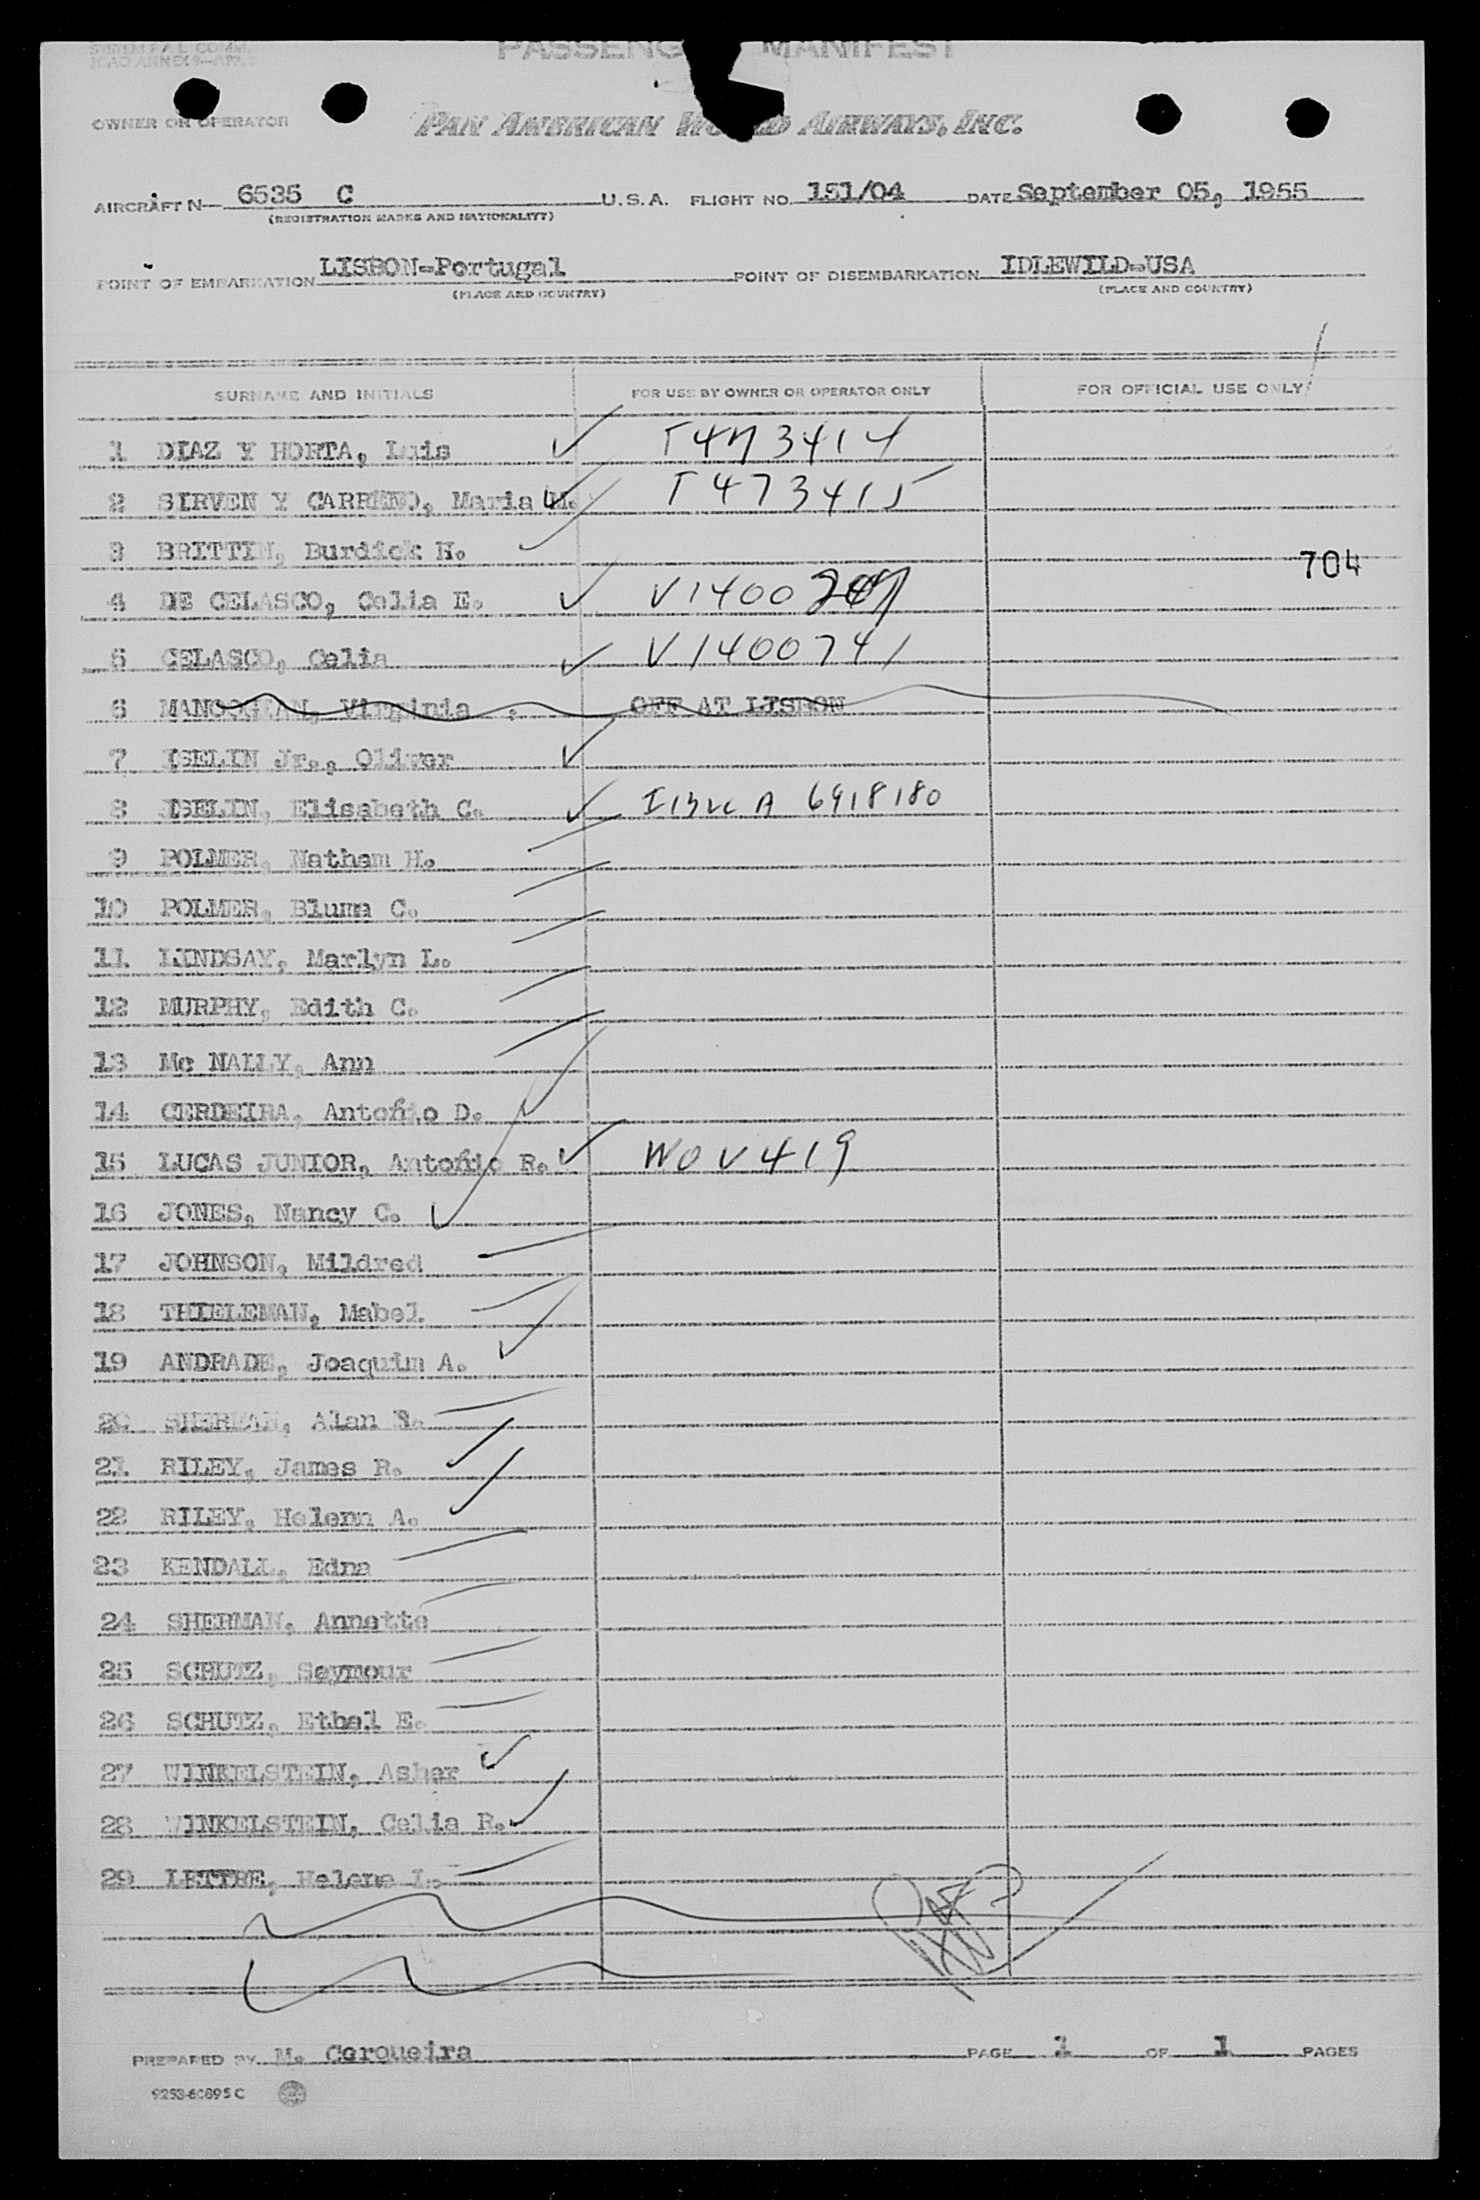 SYSTEM P.A.L. COMM.
ICAO ANNEX 9—APP.
PASSENG MANIFEST
OWNER OR OPERATOR
PAN AMERICAN WORLD AIRWAYS, INC.
AIRCRAFT N— 6535 C U.S.A. FLIGHT NO. 151/04 DATE September 05, 1955
(REGISTRATION MARKS AND NATIONALITY)
POINT OF EMBARKATION LISBON-Portugal POINT OF DISEMBARKATION IDLEWILD-USA
(PLACE AND COUNTRY) (PLACE AND COUNTRY)
SURNAME AND INITIALS FOR USE BY OWNER OR OPERATOR ONLY FOR OFFICIAL USE ONLY
1 DIAZ Y HORTA, Luis T473414
2 SIRVEN Y CARRENO, Maria H. T473415
3 BRITTIN, Burdick H.
704
4 DE CELASCO, Celia E. V1400
5 CELASCO, Celia V1400741
6 MANOOGIAN, Virginia : OFF AT LISBON
7 ISELIN Jr., Oliver
8 ISELIN, Elisabeth C. A 6918180
9 POLMER, Nathan H.
10 POLMER, Bluma C.
11 LINDSAY, Marlyn L.
12 MURPHY, Edith C.
13 Mc NALLY, Ann
14 CERDEIRA, Antonio D.
15 LUCAS JUNIOR, Antonio R. WOV419
16 JONES, Nancy C.
17 JOHNSON, Mildred
18 THIELEMAN, Mabel
19 ANDRADE, Joaquim A.
20 SHERMAN, Alan
21 RILEY, James R.
22 RILEY, Helenn A.
23 KENDALL, Edna
24 SHERMAN, Annette
25 SCHUTZ, Seymour
26 SCHUTZ, Ethel E.
27 WINKELSTEIN, Asher
28 WINKELSTEIN, Celia R.
29 LETTRE, Helene L.
PREPARED BY M. Cerqueira PAGE 1 OF 1 PAGES
9253-60895C